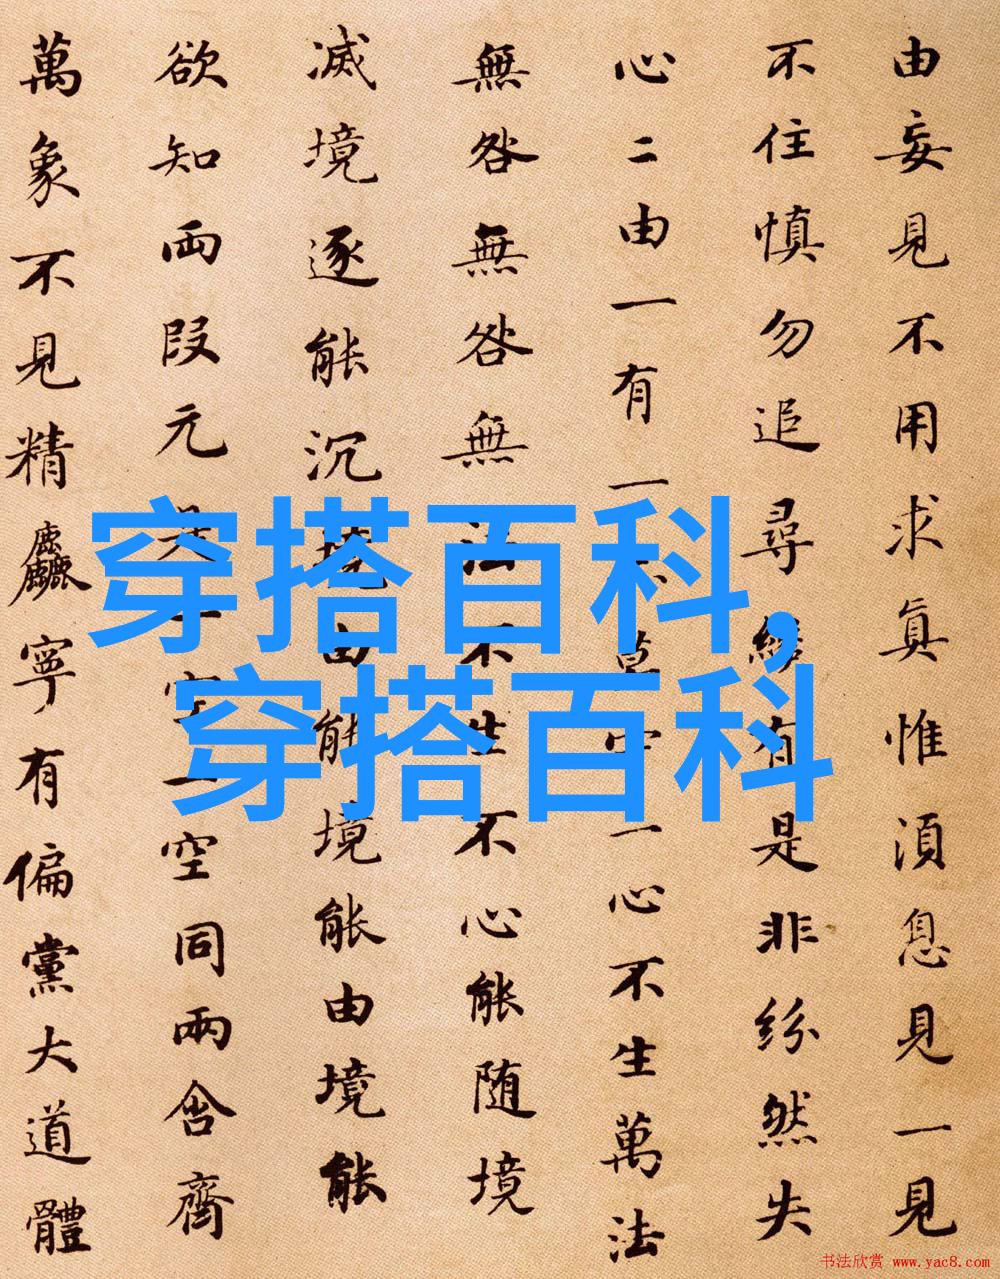 由妄見不用求眞惟湏息見一見
不住慎勿追尋纔有是非紛然失
心二由一有一莫守一心不生萬法
無咎無咎無法不生不心能随境
滅境逐能沉境由能境能由境能
欲知兩段元是一空一空同兩含齊
萬象不見精麤寧有偏黨大道體
穿搭百科,
穿搭百科
书法欣赏 www.yac8.com